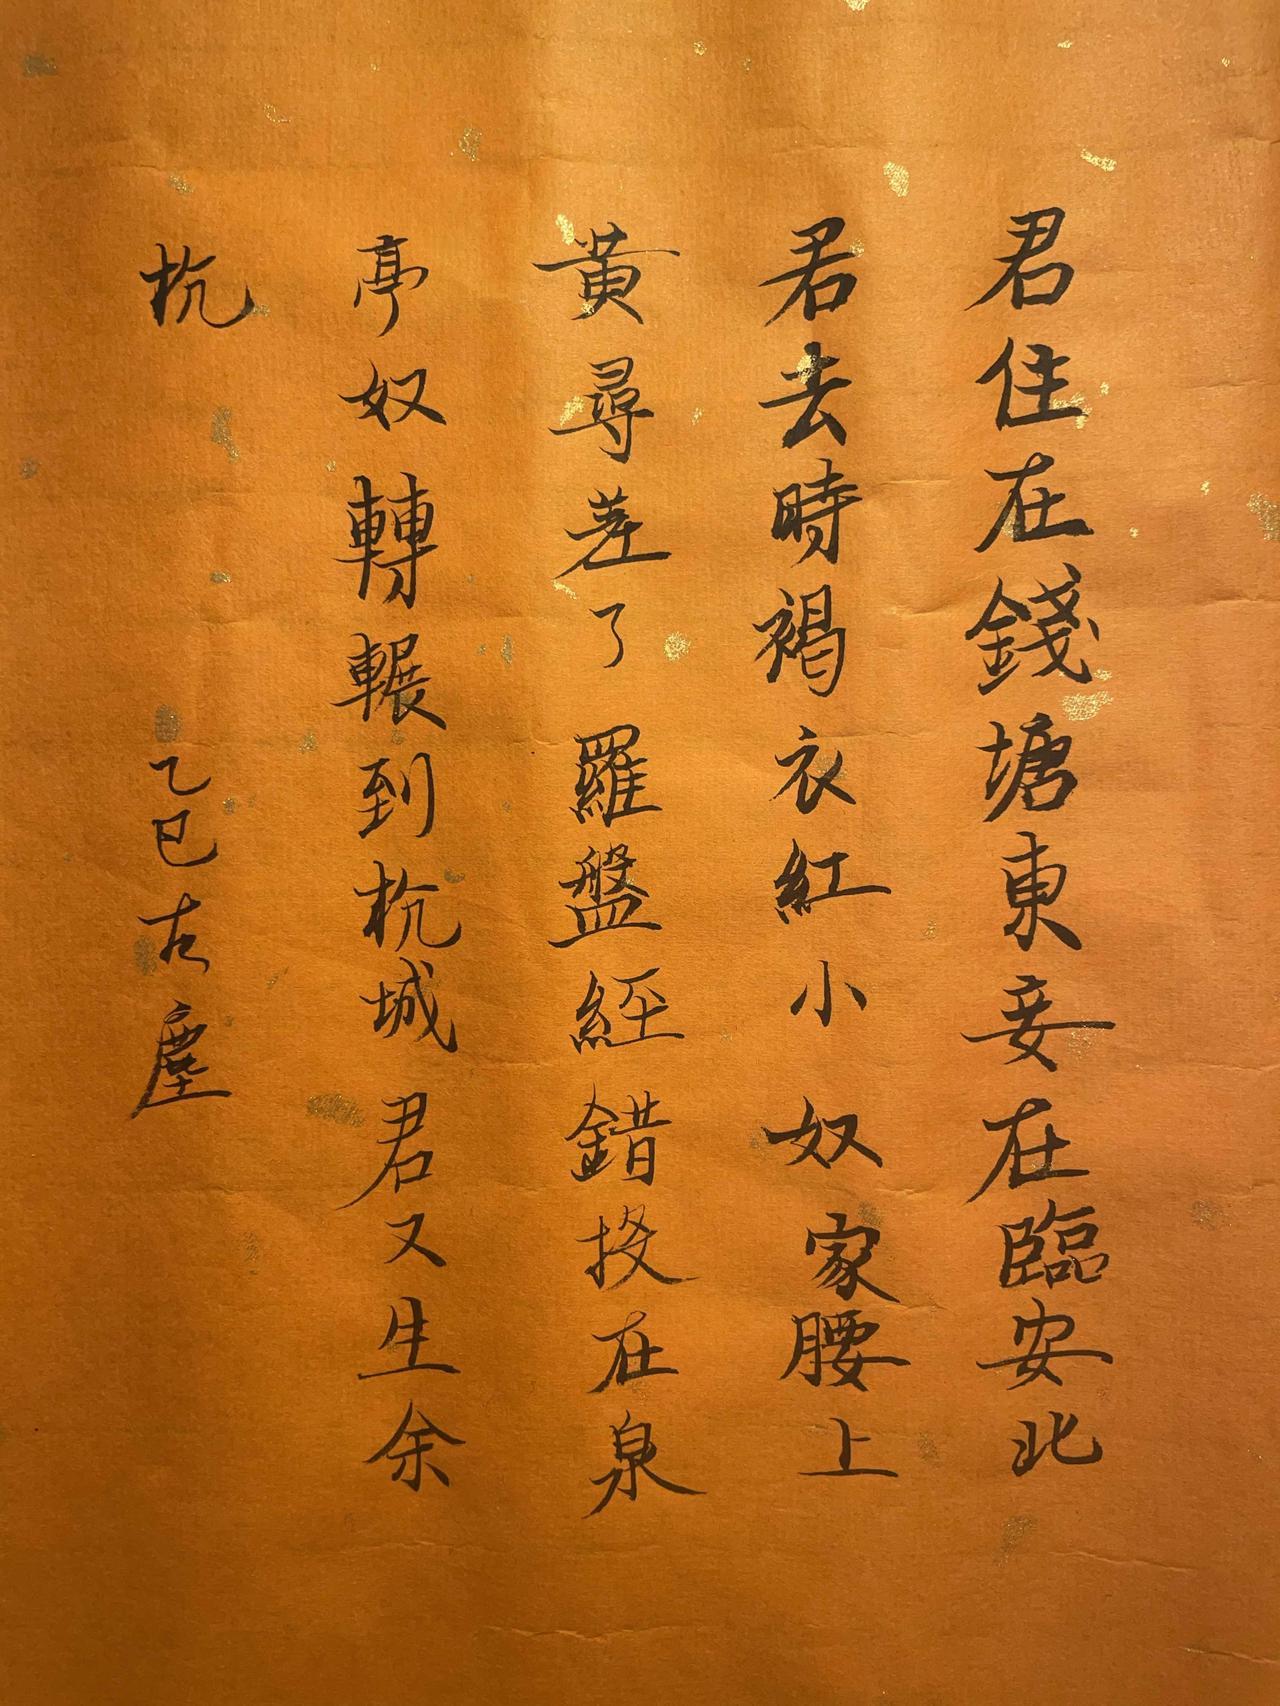 君住在錢塘東妾在臨安北
君去時褐衣紅小奴家腰上
黃尋差了羅盤經錯投在泉
亭奴轉輾到杭城君又生余
杭
乙巳左塵